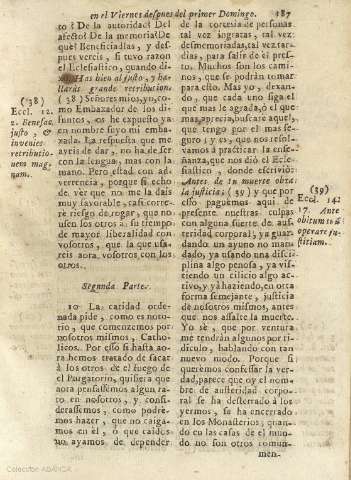 en el Viernes despues del primer Domingo. 187
to? De la autoridad? Del
afecto? De la memoria? De
que? Beneficiadlas, y des-
pues vereis, si tuvo razon
el Eclesiastico, quando di-
xo. Has bien al justo, y ha-
llarás grande retribucion.
(38) Señores mios, yo, co-
mo Embaxador de los di-
funtos, os he expuesto ya
en nombre suyo mi emba-
xada. La respuesta que me
aveis de dar, no ha de ser
con la lengua, mas con la
mano. Pero estad con ad-
vertencia, porque si echo
de ver que no me la dais
muy favorable, casi corre-
rè riesgo de rogar, que no
usen los otros a su tiempo
de mayor liberalidad con
vosotros, que la que usa-
reis aora vosotros con los
otros.
(38)
Eccl. 12.
2. Benefac
justo, &
invenies
retributio-
nem mag-
nam.
Segunda Parte.
10 La caridad orde-
nada pide, como es noto-
rio, que comenzemos por
nosotros mismos, Catho-
licos. Por esso si hasta ao-
ra hemos tratado de sacar
à los otros de el fuego de
el Purgatorio, quisiera que
aora pensassemos algun ra-
to en nosotros, y consi-
derassemos, como podrè-
mos hazer, que no caiga-
mos en èl, ò que caìdos
no ayamos de depender
de la cortesìa de personas
tal vez ingratas, tal vez
desmemoriadas, tal vez tar-
dias, para salir de èl pres-
to. Muchos son los cami-
nos, que se podràn tomar
para esto. Mas yo, dexan-
do, que cada uno siga el
que mas le agrada, ò el que
mas aprecia, buscarè aquel,
que tengo por el mas se-
guro y es, que nos resol-
vamos à practicar la ense-
ñanza, que nos diò el Ecle-
siastico, donde escriviò:
Antes de tu muerte obra
la justicia: (39) y que por
esto paguèmos aqui de
presente nuestras culpas
con alguna suerte de aus-
teridad corporal, ya guar-
dando un ayuno no man-
dado, ya usando una disci-
plina algo penosa, ya vis-
tiendo un cilicio algo ac-
tivo, y yà haziendo, en otra
forma semejante, justicia
de nosotros mismos, antes
que nos assalte la muerte.
Yo sè, que por ventura
me tendràn algunos por ri-
diculo, hablando con tan
nuevo modo. Porque si
queremos confessar la ver-
dad, parece que oy el nom-
bre de austeridad corpo-
ral se ha desterrado à los
yermos, se ha encerrado
en los Monasterios; quan-
do en las casas de el mun-
do no son otros comun-
men-
(39)
Eccl. 14.
17. Ante
obitum tuũ
operare ju-
stitiam.
Colección ABANCA